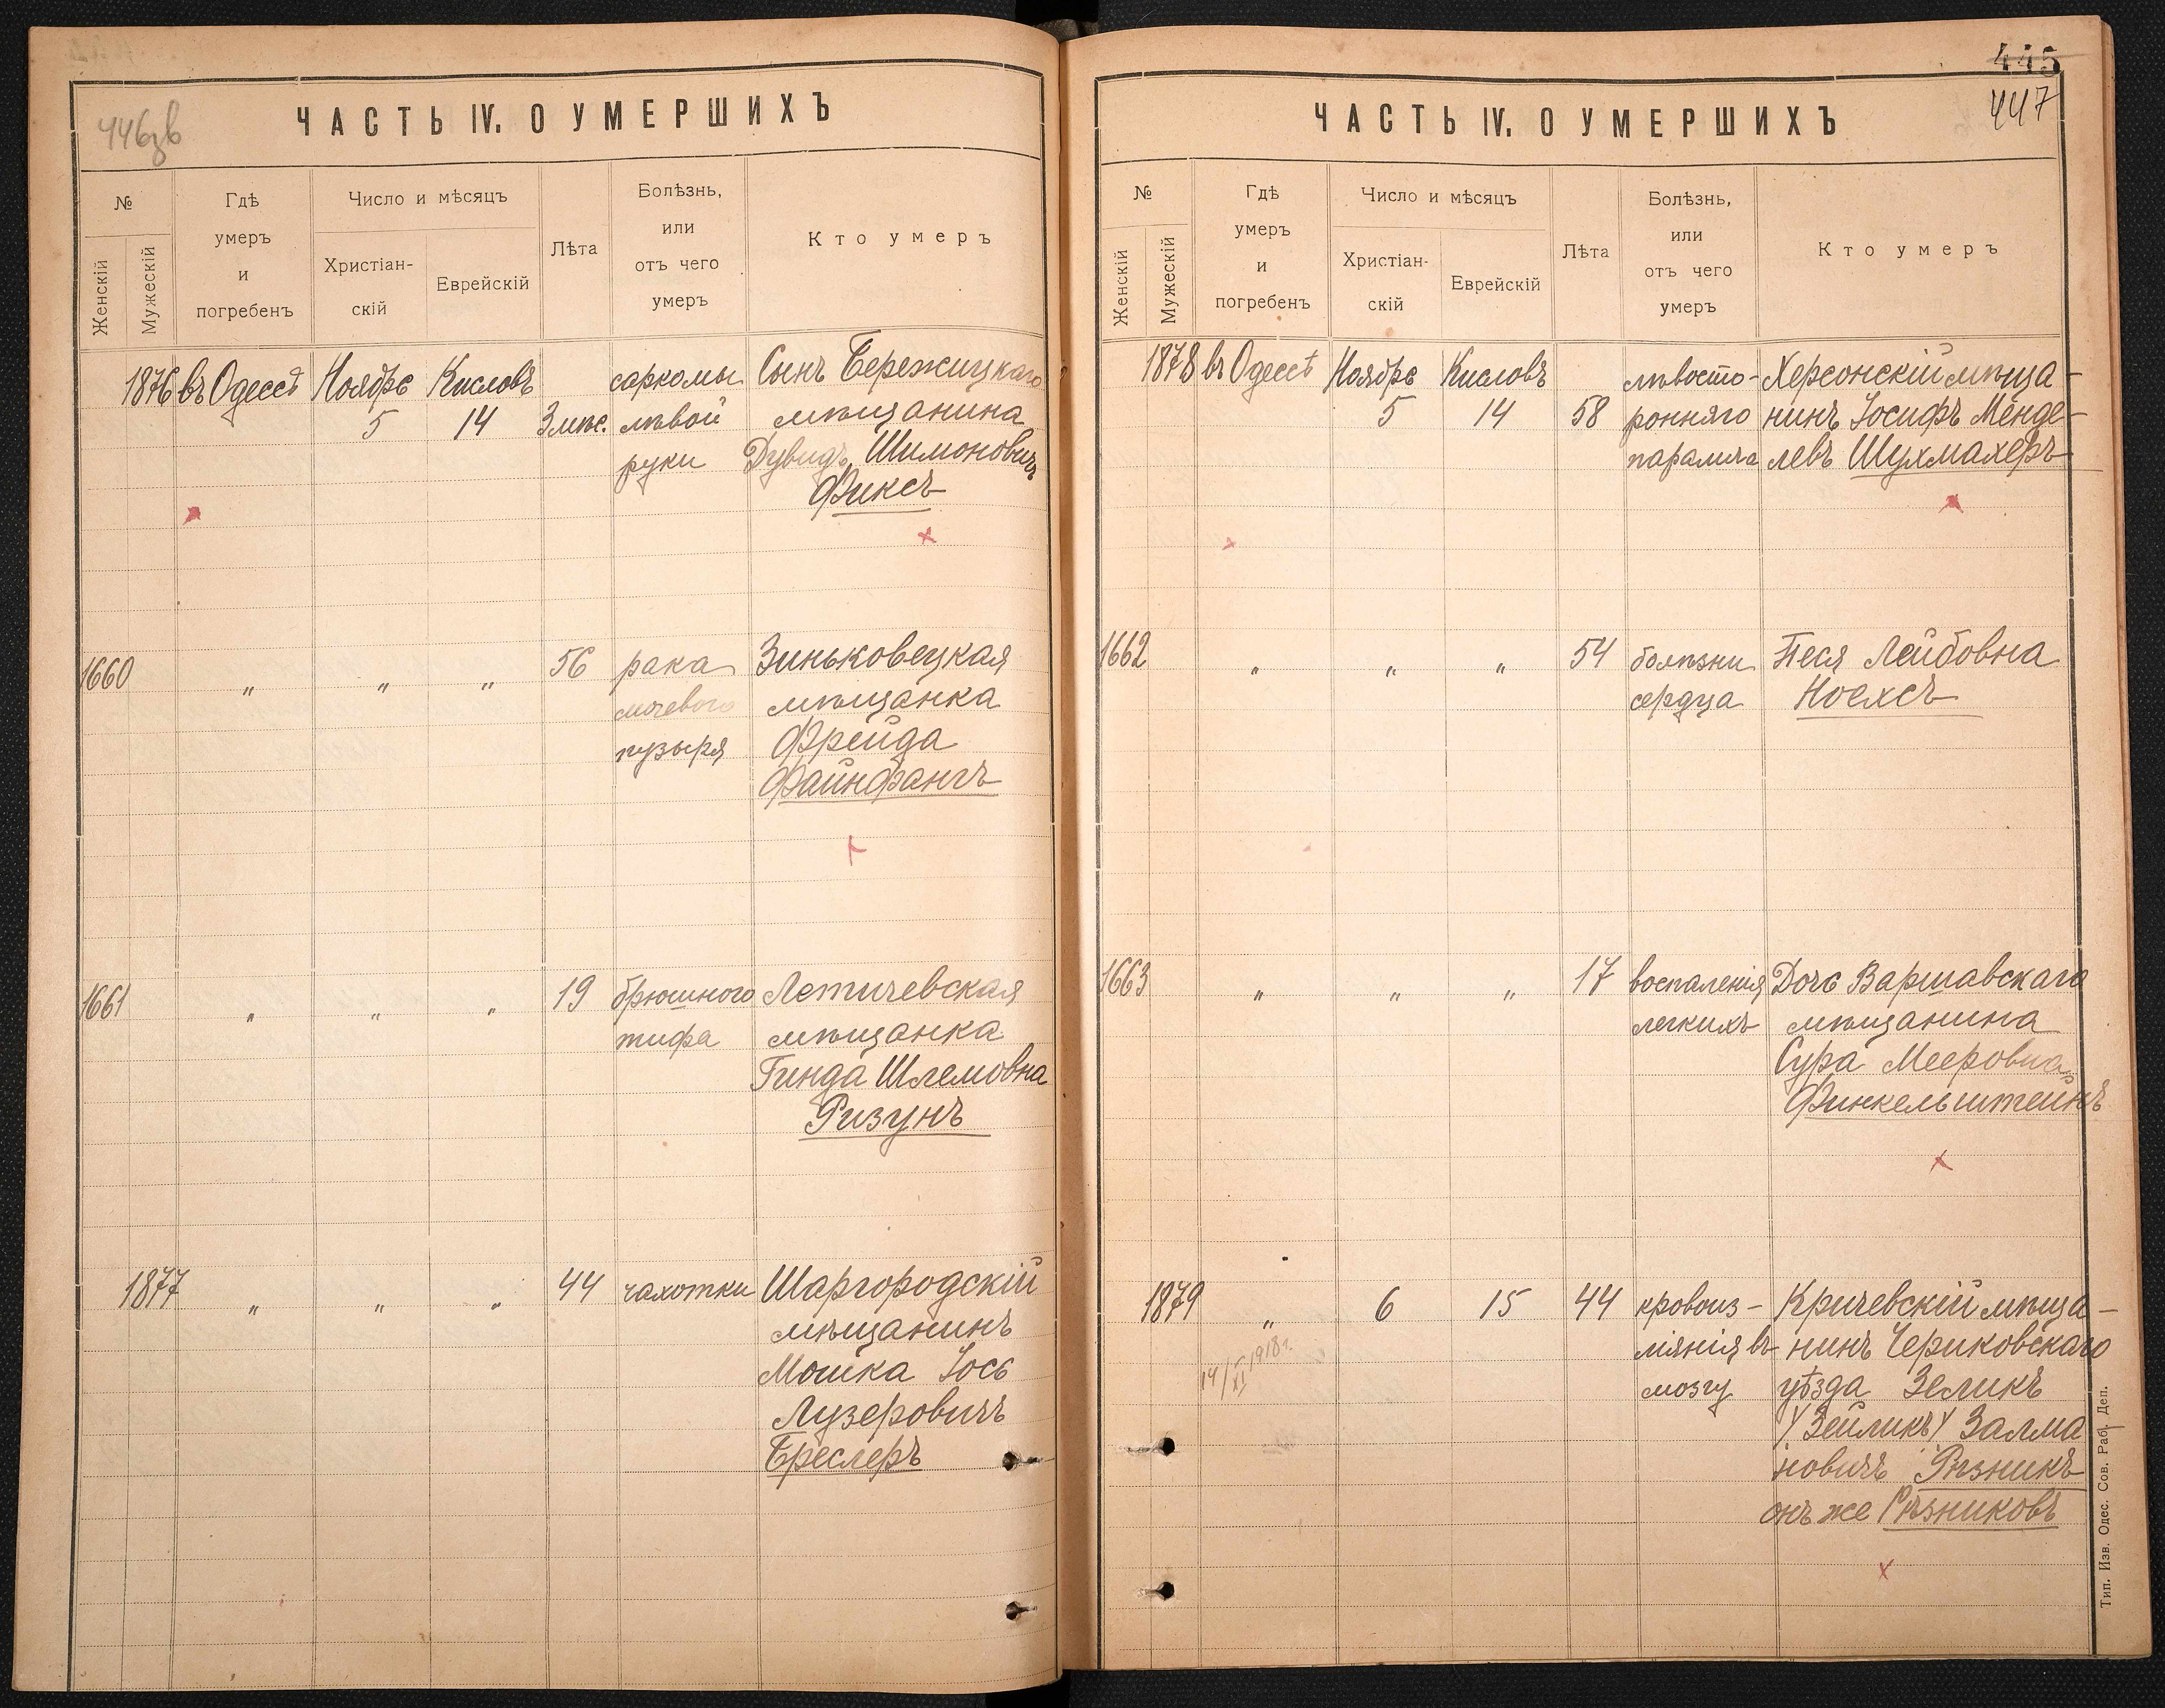 446зв
ЧАСТЬ IV. О УМЕРШИХЪ
№
Женскій
Мужескій
Гдѣ
умеръ
и
погребенъ
Число и мѣсяцъ
Христіан-
скій
Еврейскій
Лѣта
Болѣзнь,
или
отъ чего
умеръ
Кто умеръ
1876 въ Одессѣ Ноябрь Кисловъ саркомы Сынъ Бережицкаго
5 14 3 мѣс. лѣвой мѣщанина
руки Дувидъ Шимоновичъ
Фиксъ
1660 " " " 56 рака Зиньковецкая
мочевого мѣщанка
пузыря Фрейда
Файнфангъ
1661 " " " 19 брюшного Летичевская
тифа мѣщанка
Гинда Шлемовна
Ризунъ
1877 " " " 44 чахотки Шаргородскій
мѣщанинъ
Мошка Іось
Лузеровичъ
Бреслеръ
445
447
ЧАСТЬ IV. О УМЕРШИХЪ
№
Женскій
Мужескій
Гдѣ
умеръ
и
погребенъ
Число и мѣсяцъ
Христіан-
скій
Еврейскій
Лѣта
Болѣзнь,
или
отъ чего
умеръ
Кто умеръ
1878 въ Одессѣ Ноябрь Кисловъ лѣвосто- Херсонскій мѣща-
5 14 58 ронняго нинъ Іосифъ Менде-
паралича левъ Шухмахеръ
1662 " " " 54 болѣзни Песя Лейбовна
сердца Ноехсъ
1663 " " " 17 воспаленія Дочь Варшавскаго
легкихъ мѣщанина
Сура Мееровна
Финкельштейнъ
1879 " 6 15 44 кровоиз- Кричевскій мѣща-
ліянія въ нинъ Чериковскаго
14/XI 1918 г.
мозгу уѣзда Зеликъ
/Зейликъ/ Залма
новичъ Рѣзникъ
онъ же Рѣзниковъ
Тип. Изв. Одес. Сов. Раб. Деп.